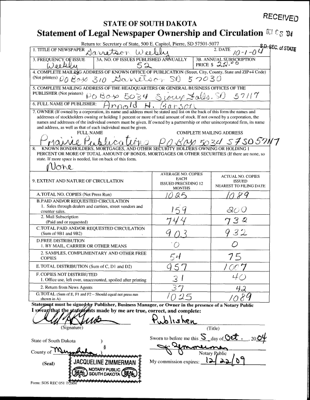 RECEIVED
STATE OF SOUTH DAKOTA
Statement of Legal Newspaper Ownership and Circulation
Return to: Secretary of State, 500 E. Capitol, Pierre, SD 57501-5077
1. TITLE OF NEWSPAPER Garretson Weekly 2. DATE 10-1-04
3. FREQUENCY OF ISSUE Weekly
3A. NO. OF ISSUES PUBLISHED ANNUALLY 52
3B. ANNUAL SUBSCRIPTION PRICE $
4. COMPLETE MAILING ADDRESS OF KNOWN OFFICE OF PUBLICATION (Street, City, County, State and ZIP+4 Code) (Not printers)
PO Box 310 Garretson, SD 57030
5. COMPLETE MAILING ADDRESS OF THE HEADQUARTERS OR GENERAL BUSINESS OFFICES OF THE PUBLISHER (Not printer)
PO Box 5034 Sioux Falls, SD 57117
6. FULL NAME OF PUBLISHER:
7. OWNER (If owned by a corporation, its name and address must be stated and
FULL NAME COMPLETE MAILING ADDRESS
Prairie Publications PO Box 5034 57117
8. KNOWN BONDHOLDERS, MORTGAGES, AND OTHER SECURITY HOLDERS OWNING OR HOLDING 1 PERCENT OR MORE OF TOTAL AMOUNT OF BONDS, MORTGAGES OR OTHER SECURITIES (If there are none, so state. If more space is needed, list on back of this form.)
None
9. EXTENT AND NATURE OF CIRCULATION
AVERAGE NO. COPIES EACH ISSUED PRECEDING 12 MONTHS
ACTUAL NO. COPIES ISSUED NEAREST TO FILING DATE
A. TOTAL NO. COPIES (Net Press Run) 1025 1089
B. PAID AND/OR REQUESTED CIRCULATION
1. Sales through dealers and carriers, street vendors and counter sales. 159 200
2. Mail Subscription (Paid and or requested) 744 732
C. TOTAL PAID AND/OR REQUESTED CIRCULATION (Sum of 9B1 and 9B2) 903 932
D. FREE DISTRIBUTION
1. BY MAIL, CARRIER OR OTHER MEANS 0 0
2. SAMPLES, COMPLIMENTARY AND OTHER FREE COPIES 54 75
E. TOTAL DISTRIBUTION (Sum of C, D1 and D2) 957 1007
F. COPIES NOT DISTRIBUTED
1. Office use, left over, unaccounted, spoiled after printing 31 40
2. Return from News Agents 37 42
G. TOTAL (Sum of E, F1 and F2 - Should equal net press run shown in A) 1025 1089
Statement must be signed by Publisher, Business Manager, or Owner in the presence of a Notary Public
I swear that the statements made by me are true, correct, and complete:
Publisher
(Signature) (Title)
State of South Dakota )
County of )
Sworn to before me this 5 day of Oct. 2004
Notary Public
(Seal)
JACQUELINE ZIMMERMAN
NOTARY PUBLIC
SOUTH DAKOTA
My commission expires: 12/22/09